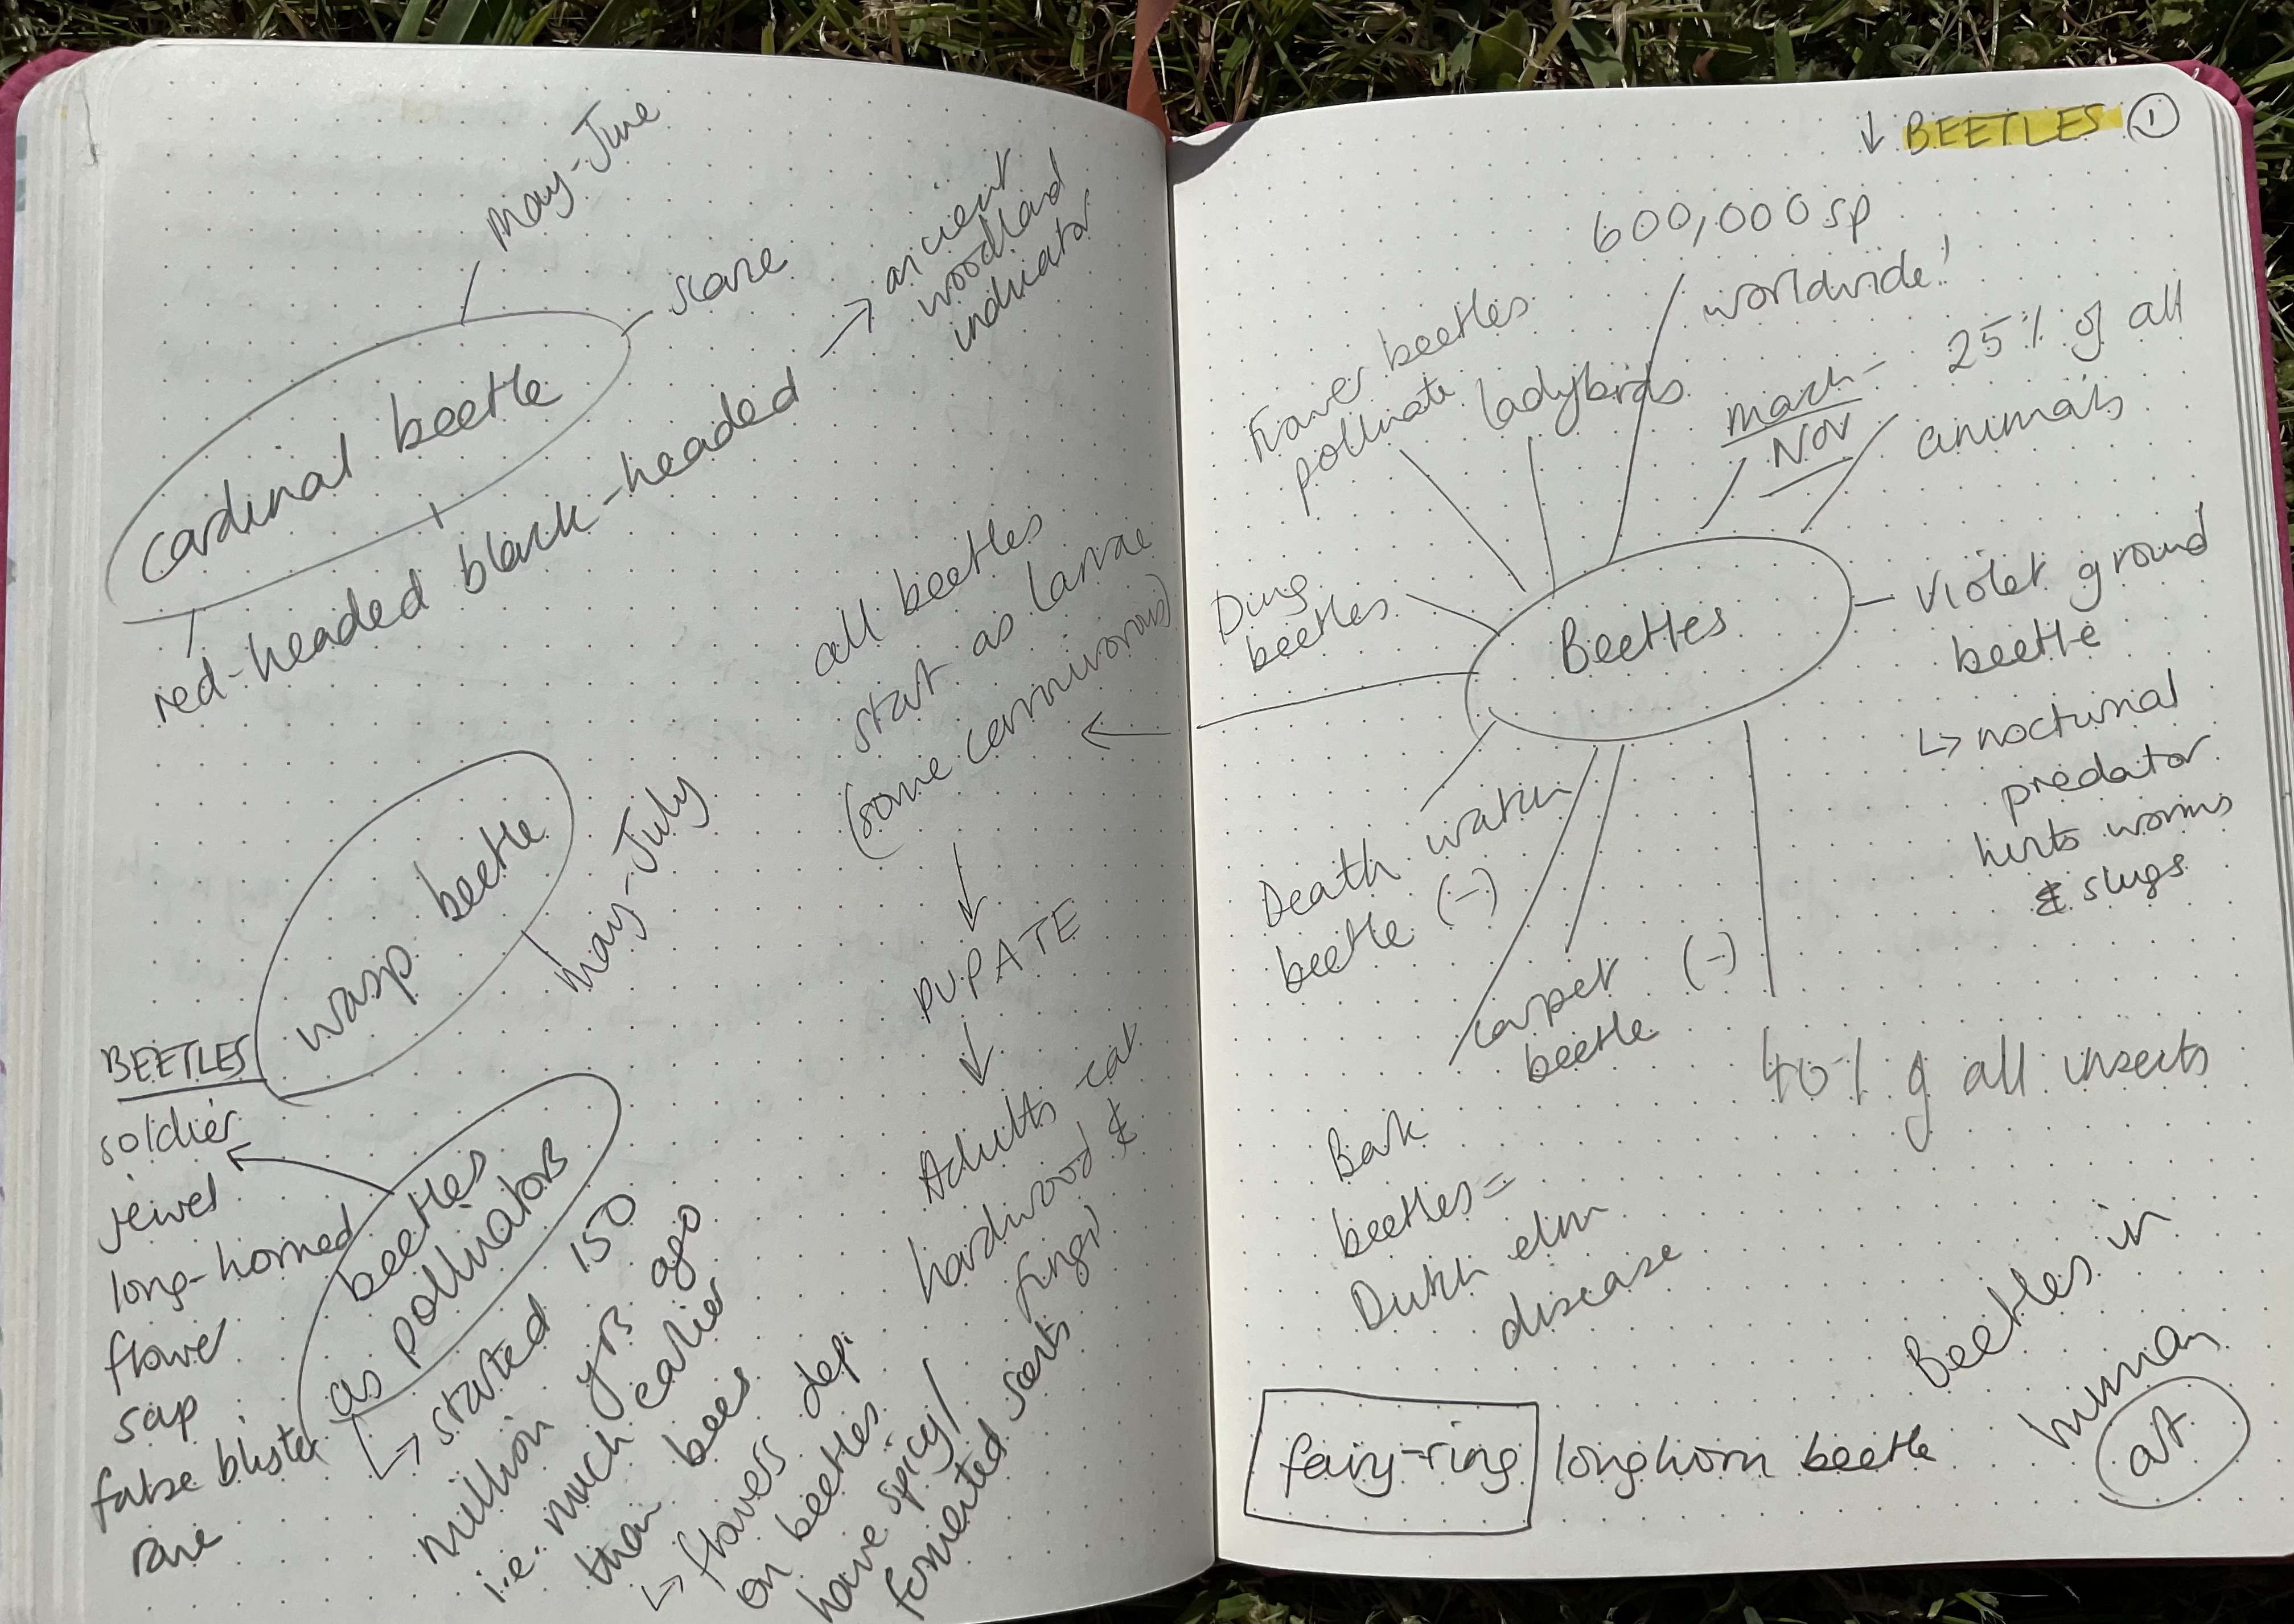 May-June
scarce
cardinal beetle
red-headed black-headed
ancient
woodland
indicator
all beetles
start as larvae
(some carnivorous)
PUPATE
Adults eat
hardwood &
fungi
wasp beetle
May-July
BEETLES
soldier
jewel
long-horned
flower
sap
false blister
rove
beetles
as pollinators
↳ started 150
million yrs ago
i.e. much earlier
than bees
↳ flowers dep.
on beetles
have spicy/
fermented scents
↓ BEETLES ①
600,000 sp
worldwide!
Flower beetles
pollinate
ladybirds
March-
Nov
25% of all
animals
Dung
beetles
Beetles
violet ground
beetle
↳ nocturnal
predator
hunts worms
& slugs
Death watch
beetle (-)
carpet (-)
beetle
40% of all insects
Bark
beetles =
Dutch elm
disease
Beetles in
human
art
fairy-ring longhorn beetle